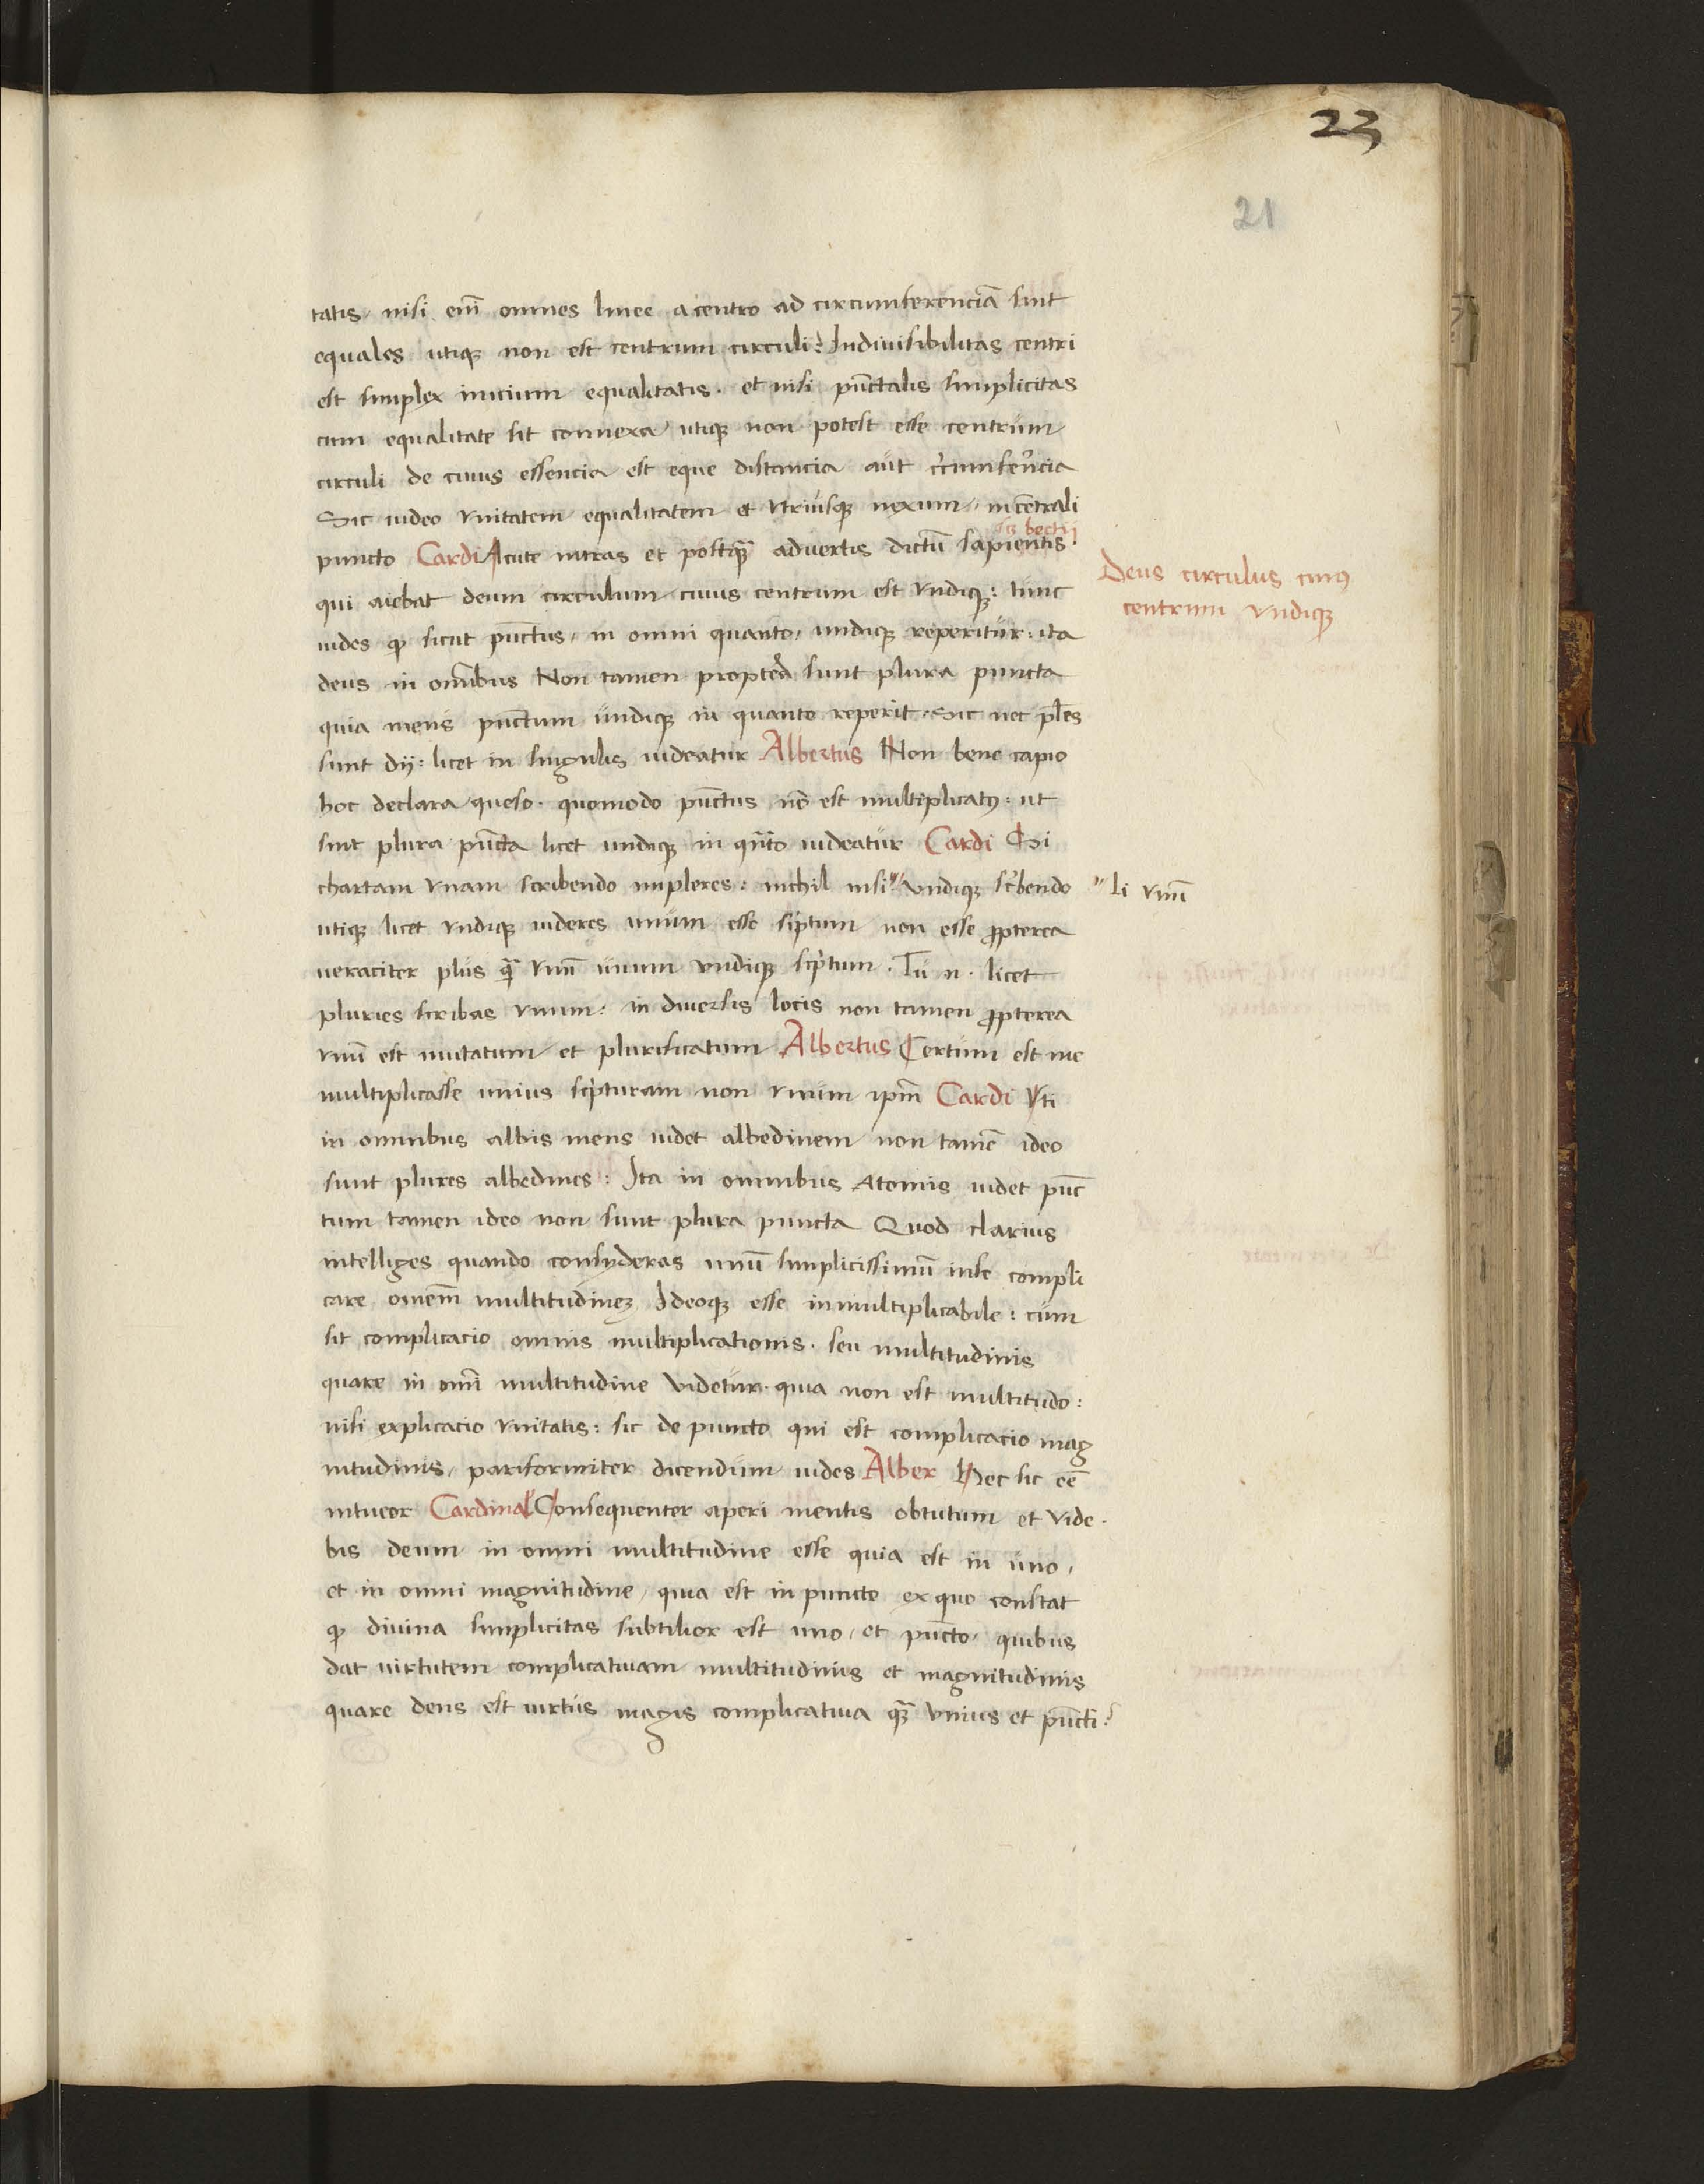 23
21
tatis, nisi em̄ omnes linee a centro ad circumferenciā sint
equales utiqꝫ non est centrum circuli: Indiuisibilitas centri
est simplex inicium equalitatis. et nisi pūctalis simplicitas
cum equalitate sit connexa, utiqꝫ non potest esse centrum
circuli de cuius essencia est eque distancia aut cr̄cumfer̄ncia
Sic uideo vnitatem equalitatem et vtriusqꝫ nexum, in cētrali
becii
puncto Cardi Acute intras et postqꝫ̄ aduertis dictū sapientis.
Deus circulus cuiꝰ
centrum vndiqꝫ
qui aiebat deum circulum cuius centrum est vndiqꝫ: tunc
uides ꝙ sicut pūctus, in omni quanto, undiqꝫ reperitur: ita
deus in omībus Non tamen propterea sunt plura puncta
quia mens pūctum undiqꝫ in quanto reperit. Sic nec pl̄es
sunt dij: licet in singulis uideatur Albertus Non bene capio
hoc declara queso. quomodo pūctus nō est multiplicatꝰ: ut
sint plura pūcta licet undiqꝫ in qn̄to uideatur Cardi Si
chartam vnam scribendo impleres: nichil nisi " vndiqꝫ sc̄bendo
" li vnū
utiqꝫ licet vndiqꝫ uideres unum esse sc̄ptum non esse ꝓpterea
ueraciter plus qꝫ̄ vnū unum vndiqꝫ sc̄ptum. Tu n. licet
pluries scribas vnum: in diuersis locis non tamen ꝓpterea
vnū est mutatum et plurificatum Albertus Certum est me
multiplicasse unius sc̄pturam non vnum ipm̄ Cardi Vti
in omnibus albis mens uidet albedinem non tamē ideo
sunt plures albedines: Ita in omnibus Atomis uidet pūc
tum tamen ideo non sunt plura puncta Quod clarius
intelliges quando consyderas unū simplicissimū in se compli
care omnem̄ multitudineꝫ Ideoqꝫ esse inmultiplicabile: cum
sit complicacio omnis multiplicationis. seu multitudinis
quare in omī multitudine videtur. quia non est multitudo:
nisi explicacio vnitatis: sic de puncto qui est complicacio mag
nitudinis, pariformiter dicendum uides Alber Hec sic eē
intueor Cardinal Consequenter aperi mentis obtutum et vide.
bis deum in omni multitudine esse quia est in uno,
et in omni magnitudine, quia est in puncto ex quo constat
ꝙ diuina simplicitas subtilior est uno, et pūcto, quibus
dat uirtutem complicatiuam multitudinis et magnitudinis
quare deus est uirtus magis complicatiua qꝫ̄ vnius et pūcti: